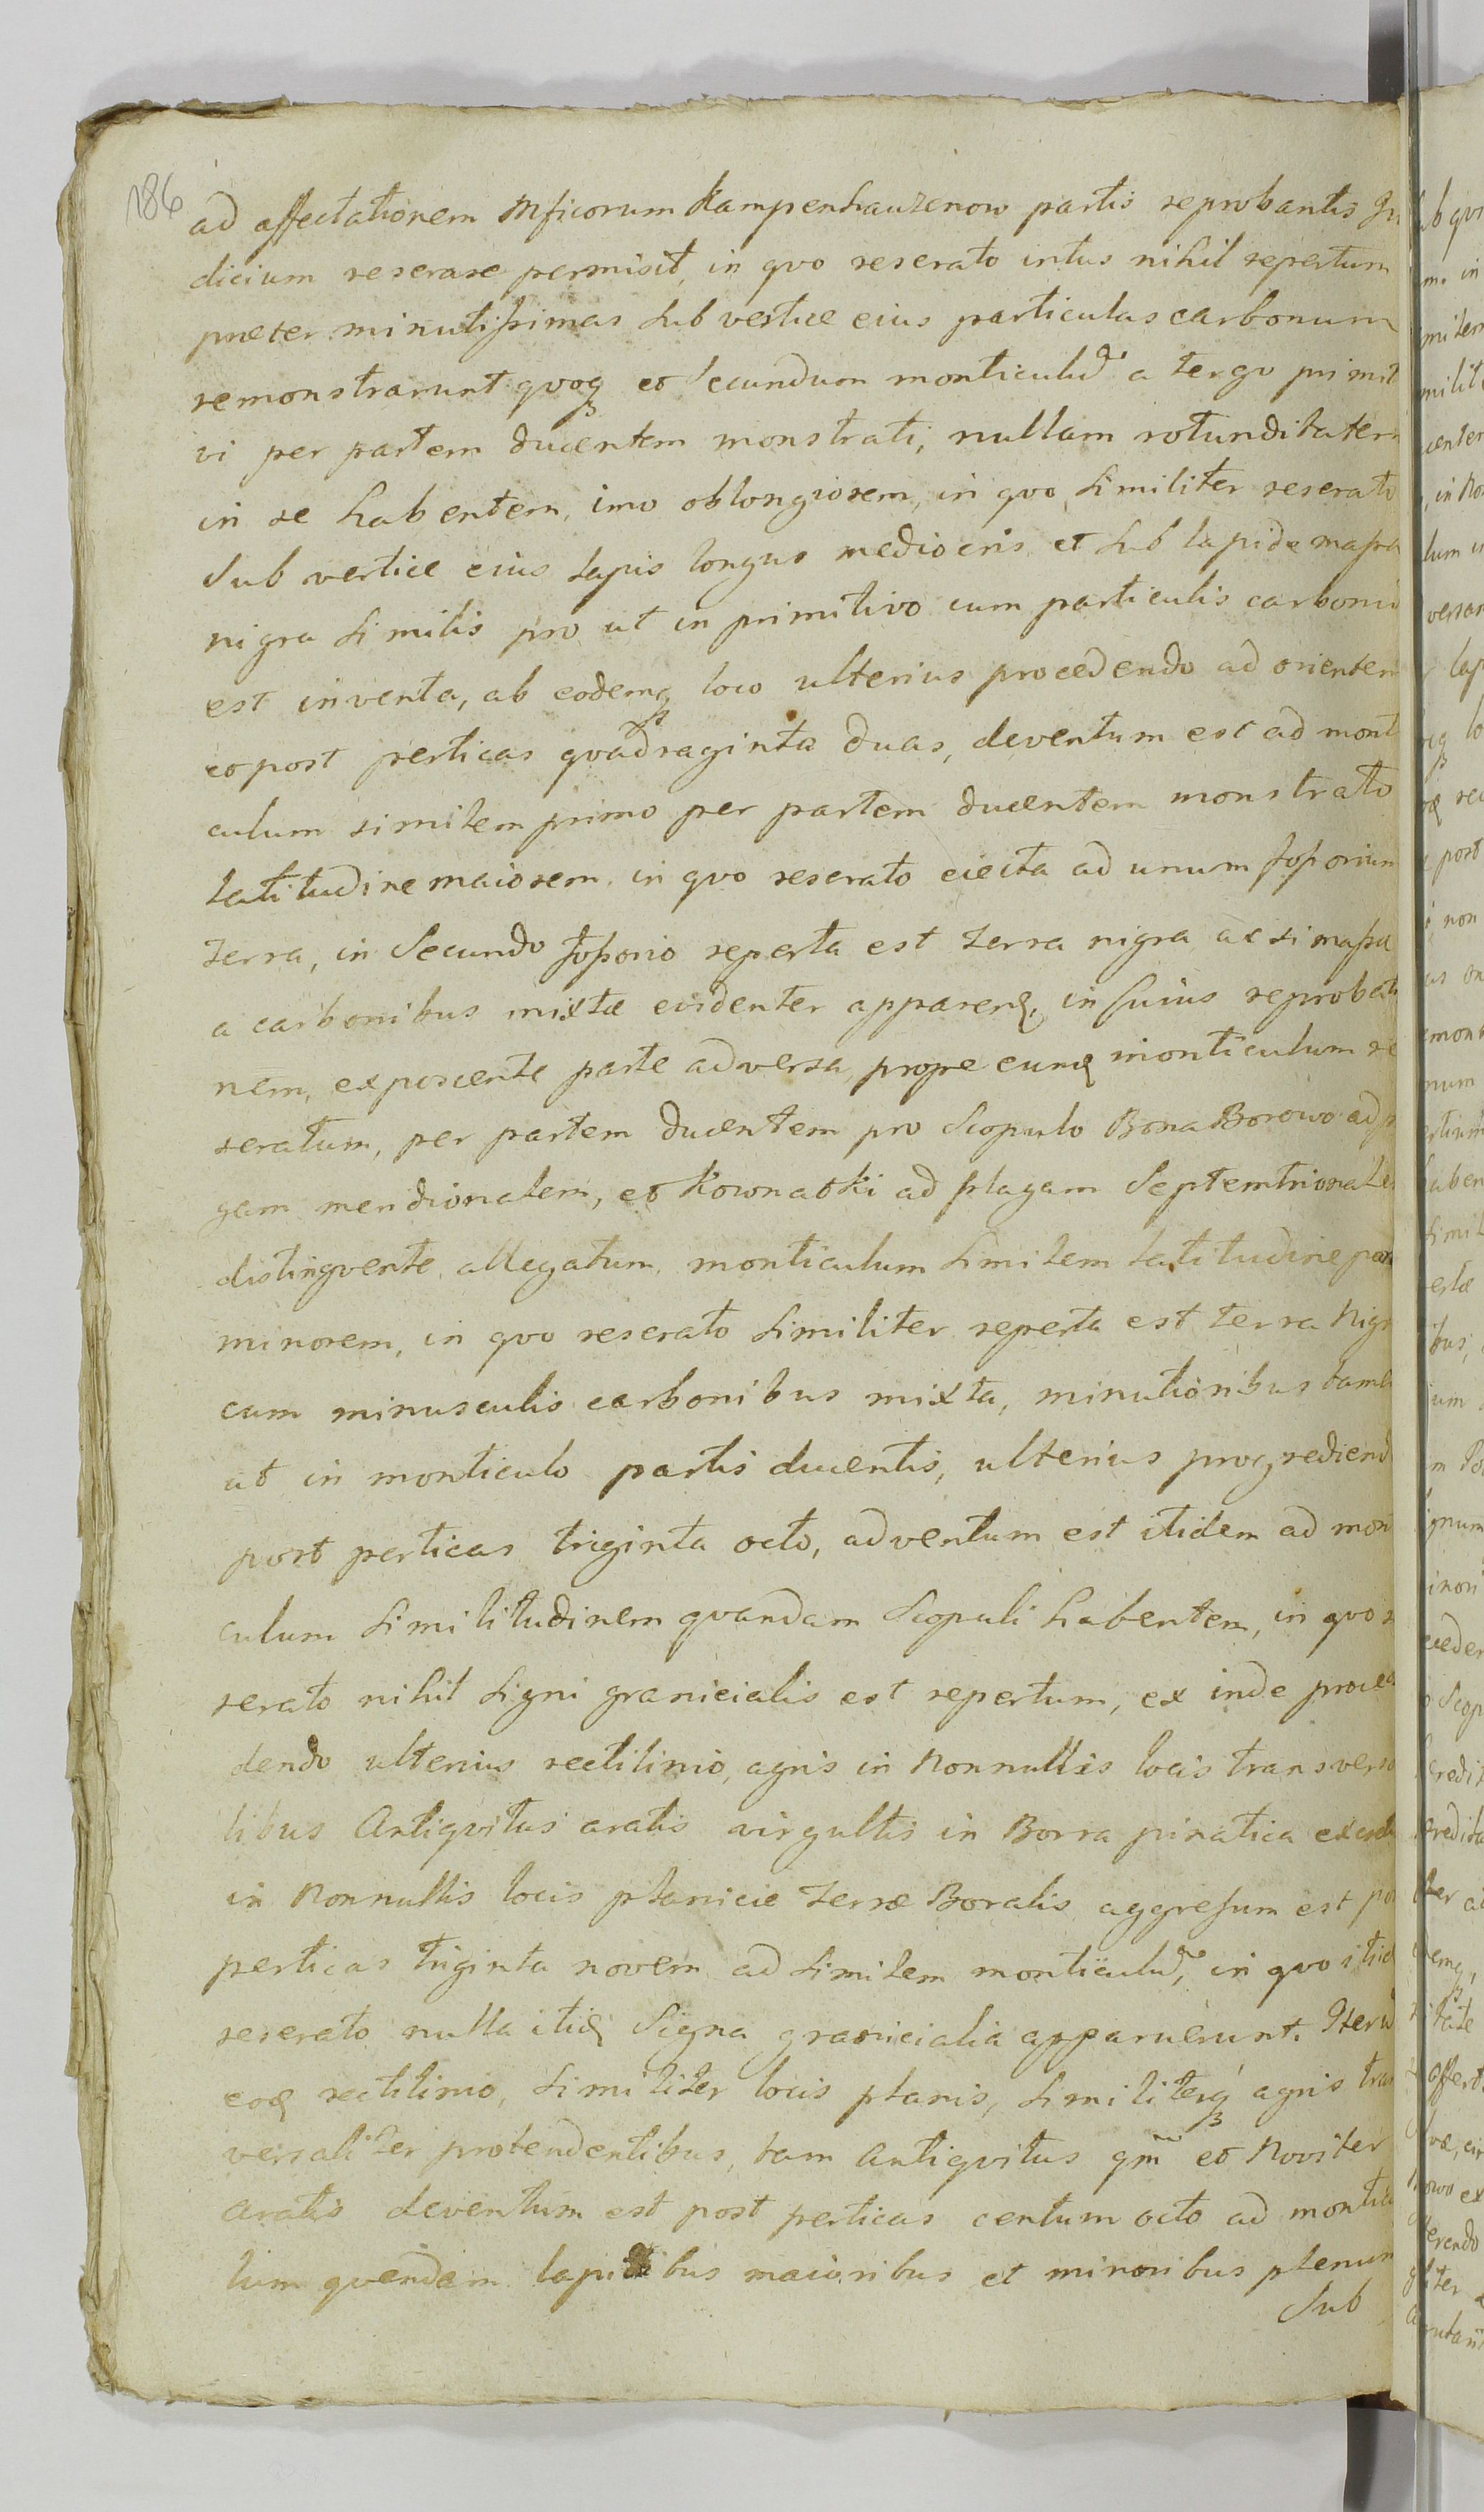 186
ad affectationem Mficorum Kampenhauzenow partis reprobantis Ju
dicium reserare permisit, in qvo reserato intus nihil repertum
praeter minutissimas sub vertice eius particulas carbonum
remonstrarunt qvoq et Secundum monticulũ a tergo primit
vi per partem ducentem monstrati, nullam rotunditatem
in se habentem, imo oblongiorem, in qvo, similiter reserato
Sub vertice eius lapis longus mediocris et sub lapide massa
nigra similis pro ut in primitivo cum particulis carbonũ
est inventa, ab eodemq loco ulterius procedendo ad orientem
et post perticas qvadraginta duas, deventum est ad mont
culum similem primo per partem ducentem monstrato
latitudine maiorem, in qvo reserato eiecta ad unum fossorium
terra, in Secundo fossorio reperta est terra nigra ac si massa
a carbonibus mixta evidenter apparens, in huius reprobatio
nem, exposcente parte adversa, prope eund monticulum re
seratum, per partem ducentem pro Scopulo Bona Borowo ad
gam meridionalem, et Kownatki ad plagam Septemtrionale
distingvente allegatum, monticulum similem latitudine par
minorem, in qvo reserato similiter reperta est terra Nigr
cum minusculis carbonibus mixta, minutioribus tame
ut in monticulo partis ducentis, ulterius progrediend
post perticas triginta octo, adventum est itidem ad mon
culum similitudinem qvandam Scopuli habentem, in qvo
serato nihil signi granicialis est repertum, ex inde proce
dendo ulterius rectilinio, agris in Nonnullis locis transversa
libus Antiqvitus aratis virgultis in Borra pinatica
in Nonnullis locis planicie terræ Boralis aggressum est po
perticas triginta novem ad similem monticulũ, in qvo itid
reserato nulla itid Signa granicialia apparuerunt. Iterũ
eod rectilinio, similiter locis planis, similiterq agris tran
versaliter protendentibus, tam Antiqvitus qm̃ et Noviter
aratis deventum est post perticas centum octo ad montic
lum qvendam lapidibus maioribus et minoribus plenum
Sub